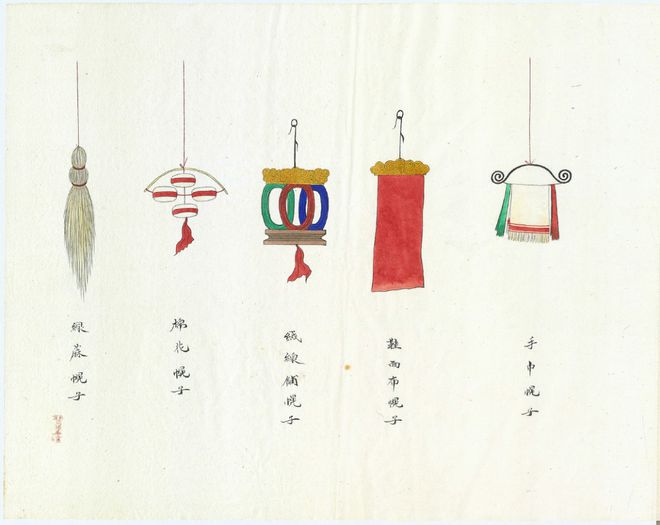 手巾幌子
鞋面布幌子
絨線舖幌子
棉花幌子
線蔴幌子